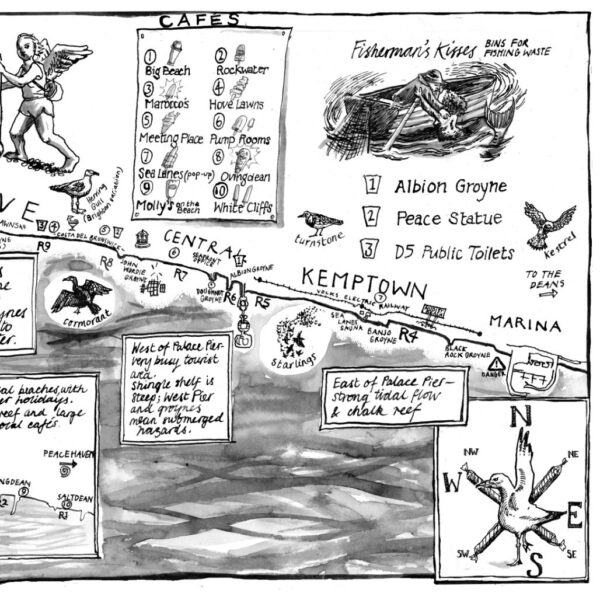 CAFES
1
Big Beach
2
Rockwater
3
Marocco's
4
Hove Lawns
5
Meeting Place
6
Pump Rooms
7
Sea Lanes (pop-up)
8
Ovingdean
9
Molly's on the Beach
10
White Cliffs
Fisherman's Kisses
BINS FOR
FISHING WASTE
1 Albion Groyne
2 Peace Statue
3 D5 Public Toilets
turnstone
kestrel
TO THE
DEANS
Herring
Gull
(Brighton variation)
VE
R9
4
COSTA DEL BRUNSWICK
5
R8
CENTRAL
6
R7
DOUGHNUT
GROYNE
ALBION GROYNE
R6
R5
KEMPTOWN
VOLKS ELECTRIC RAILWAY
7
SEA
LANES
SAUNA
BANJO
GROYNE
R4
MARINA
BLACK
ROCK GROYNE
DANGER
cormorant
starlings
West of Palace Pier-
very busy tourist
and
Shingle shelf is
steep; West Pier
and groynes
mean submerged
hazards.
East of Palace Pier—
strong tidal flow
& chalk reef
ynes
to
er.
al beaches, with
er holidays.
reef and large
ocal cafés.
PEACEHAVEN
NGDEAN
9
SALTDEAN
10
R1
N
NW
NE
W
E
SW
SE
S